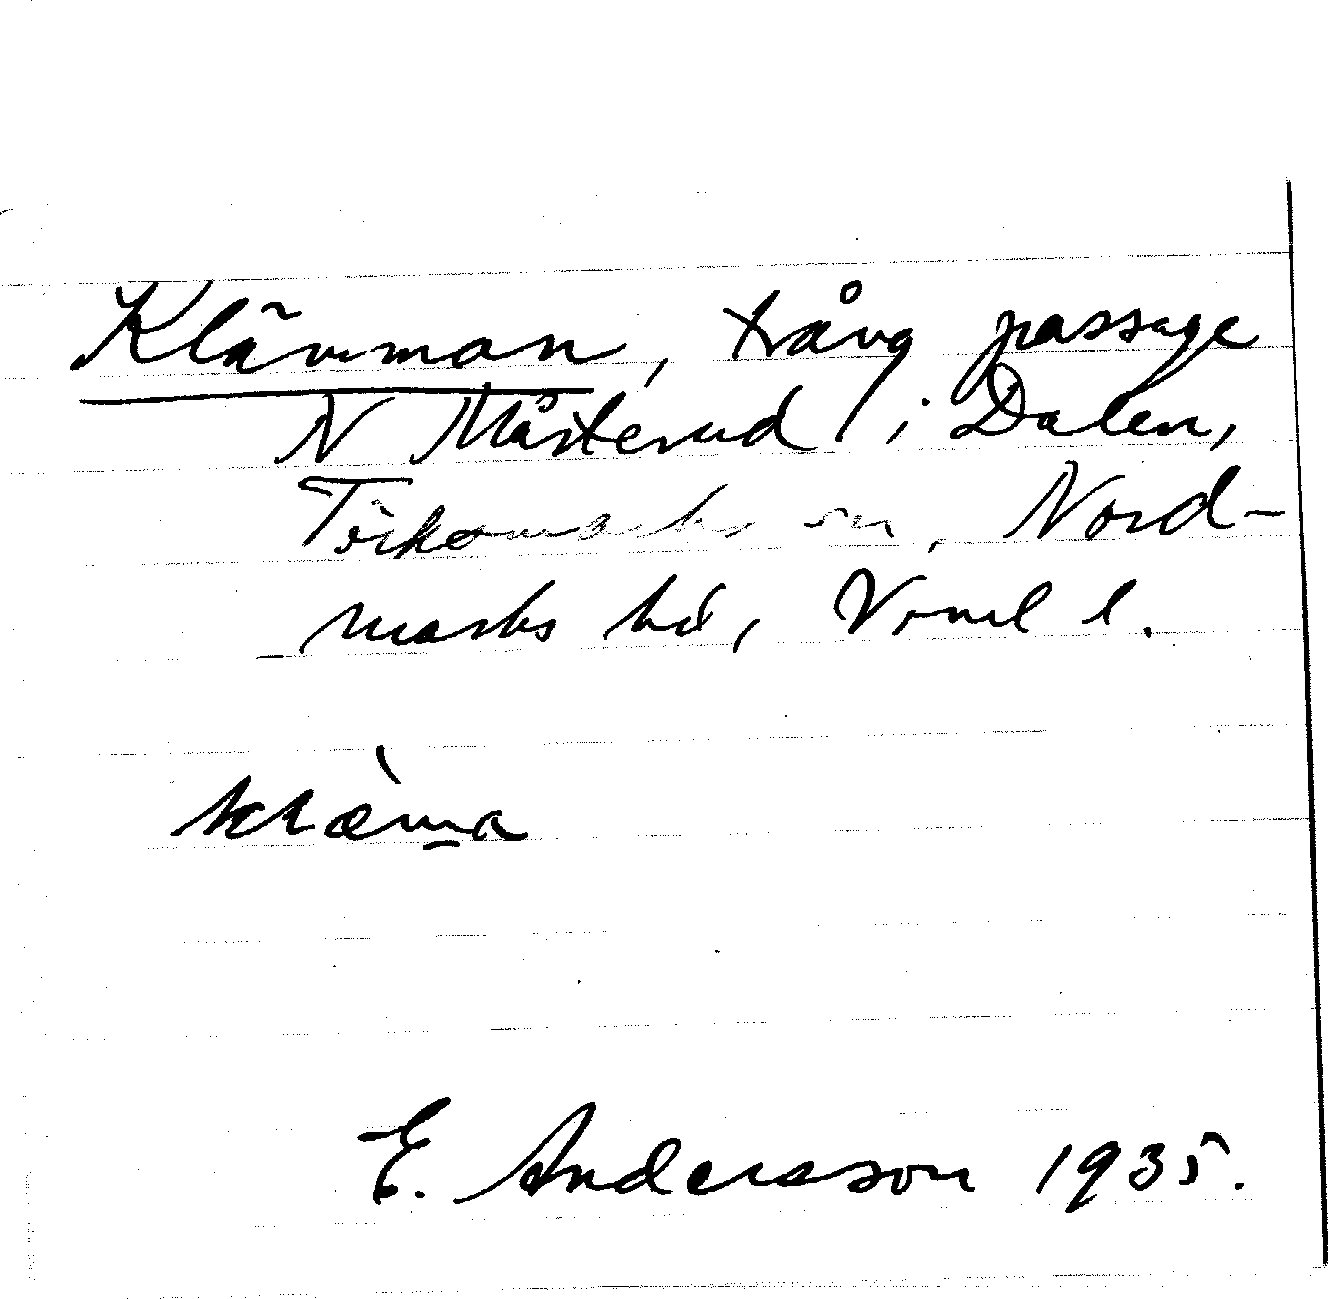 Klämman, trång passage
N Mårterud i Dalen,
Töcksmarks sn, Nord-
marks hd, Vrml l.
E. Andersson 1935.